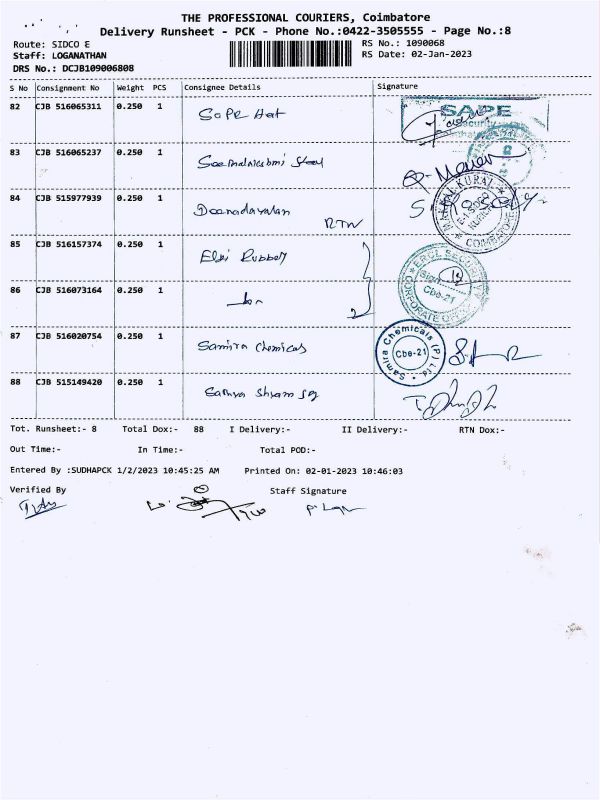 THE PROFESSIONAL COURIERS, Coimbatore
Delivery Runsheet - PCK - Phone No.:0422-3505555 - Page No.:8
Route: SIDCO E RS No.: 1090068
Staff: LOGANATHAN RS Date: 02-Jan-2023
DRS No.: DCJB109006808
S No Consignment No Weight PCS Consignee Details Signature
82 CJB 516065311 0.250 1 SAPE
Security
83 CJB 516065237 0.250 1
84 CJB 515977939 0.250 1 Deenadayalan
RTN
KURAL
SIDCO
COIMBATORE
85 CJB 516157374 0.250 1 Elgi Rubber
ERCL SECURITY
Sign
Cbe-21
CORPORATE OFFICE
86 CJB 516073164 0.250 1
87 CJB 516020754 0.250 1 Samira Chemicals
Samira Chemicals (P) Ltd
Cbe-21
88 CJB 515149420 0.250 1 Sathya Shyam
Tot. Runsheet:- 8 Total Dox:- 88 I Delivery:- II Delivery:- RTN Dox:-
Out Time:- In Time:- Total POD:-
Entered By :SUDHAPCK 1/2/2023 10:45:25 AM Printed On: 02-01-2023 10:46:03
Verified By Staff Signature